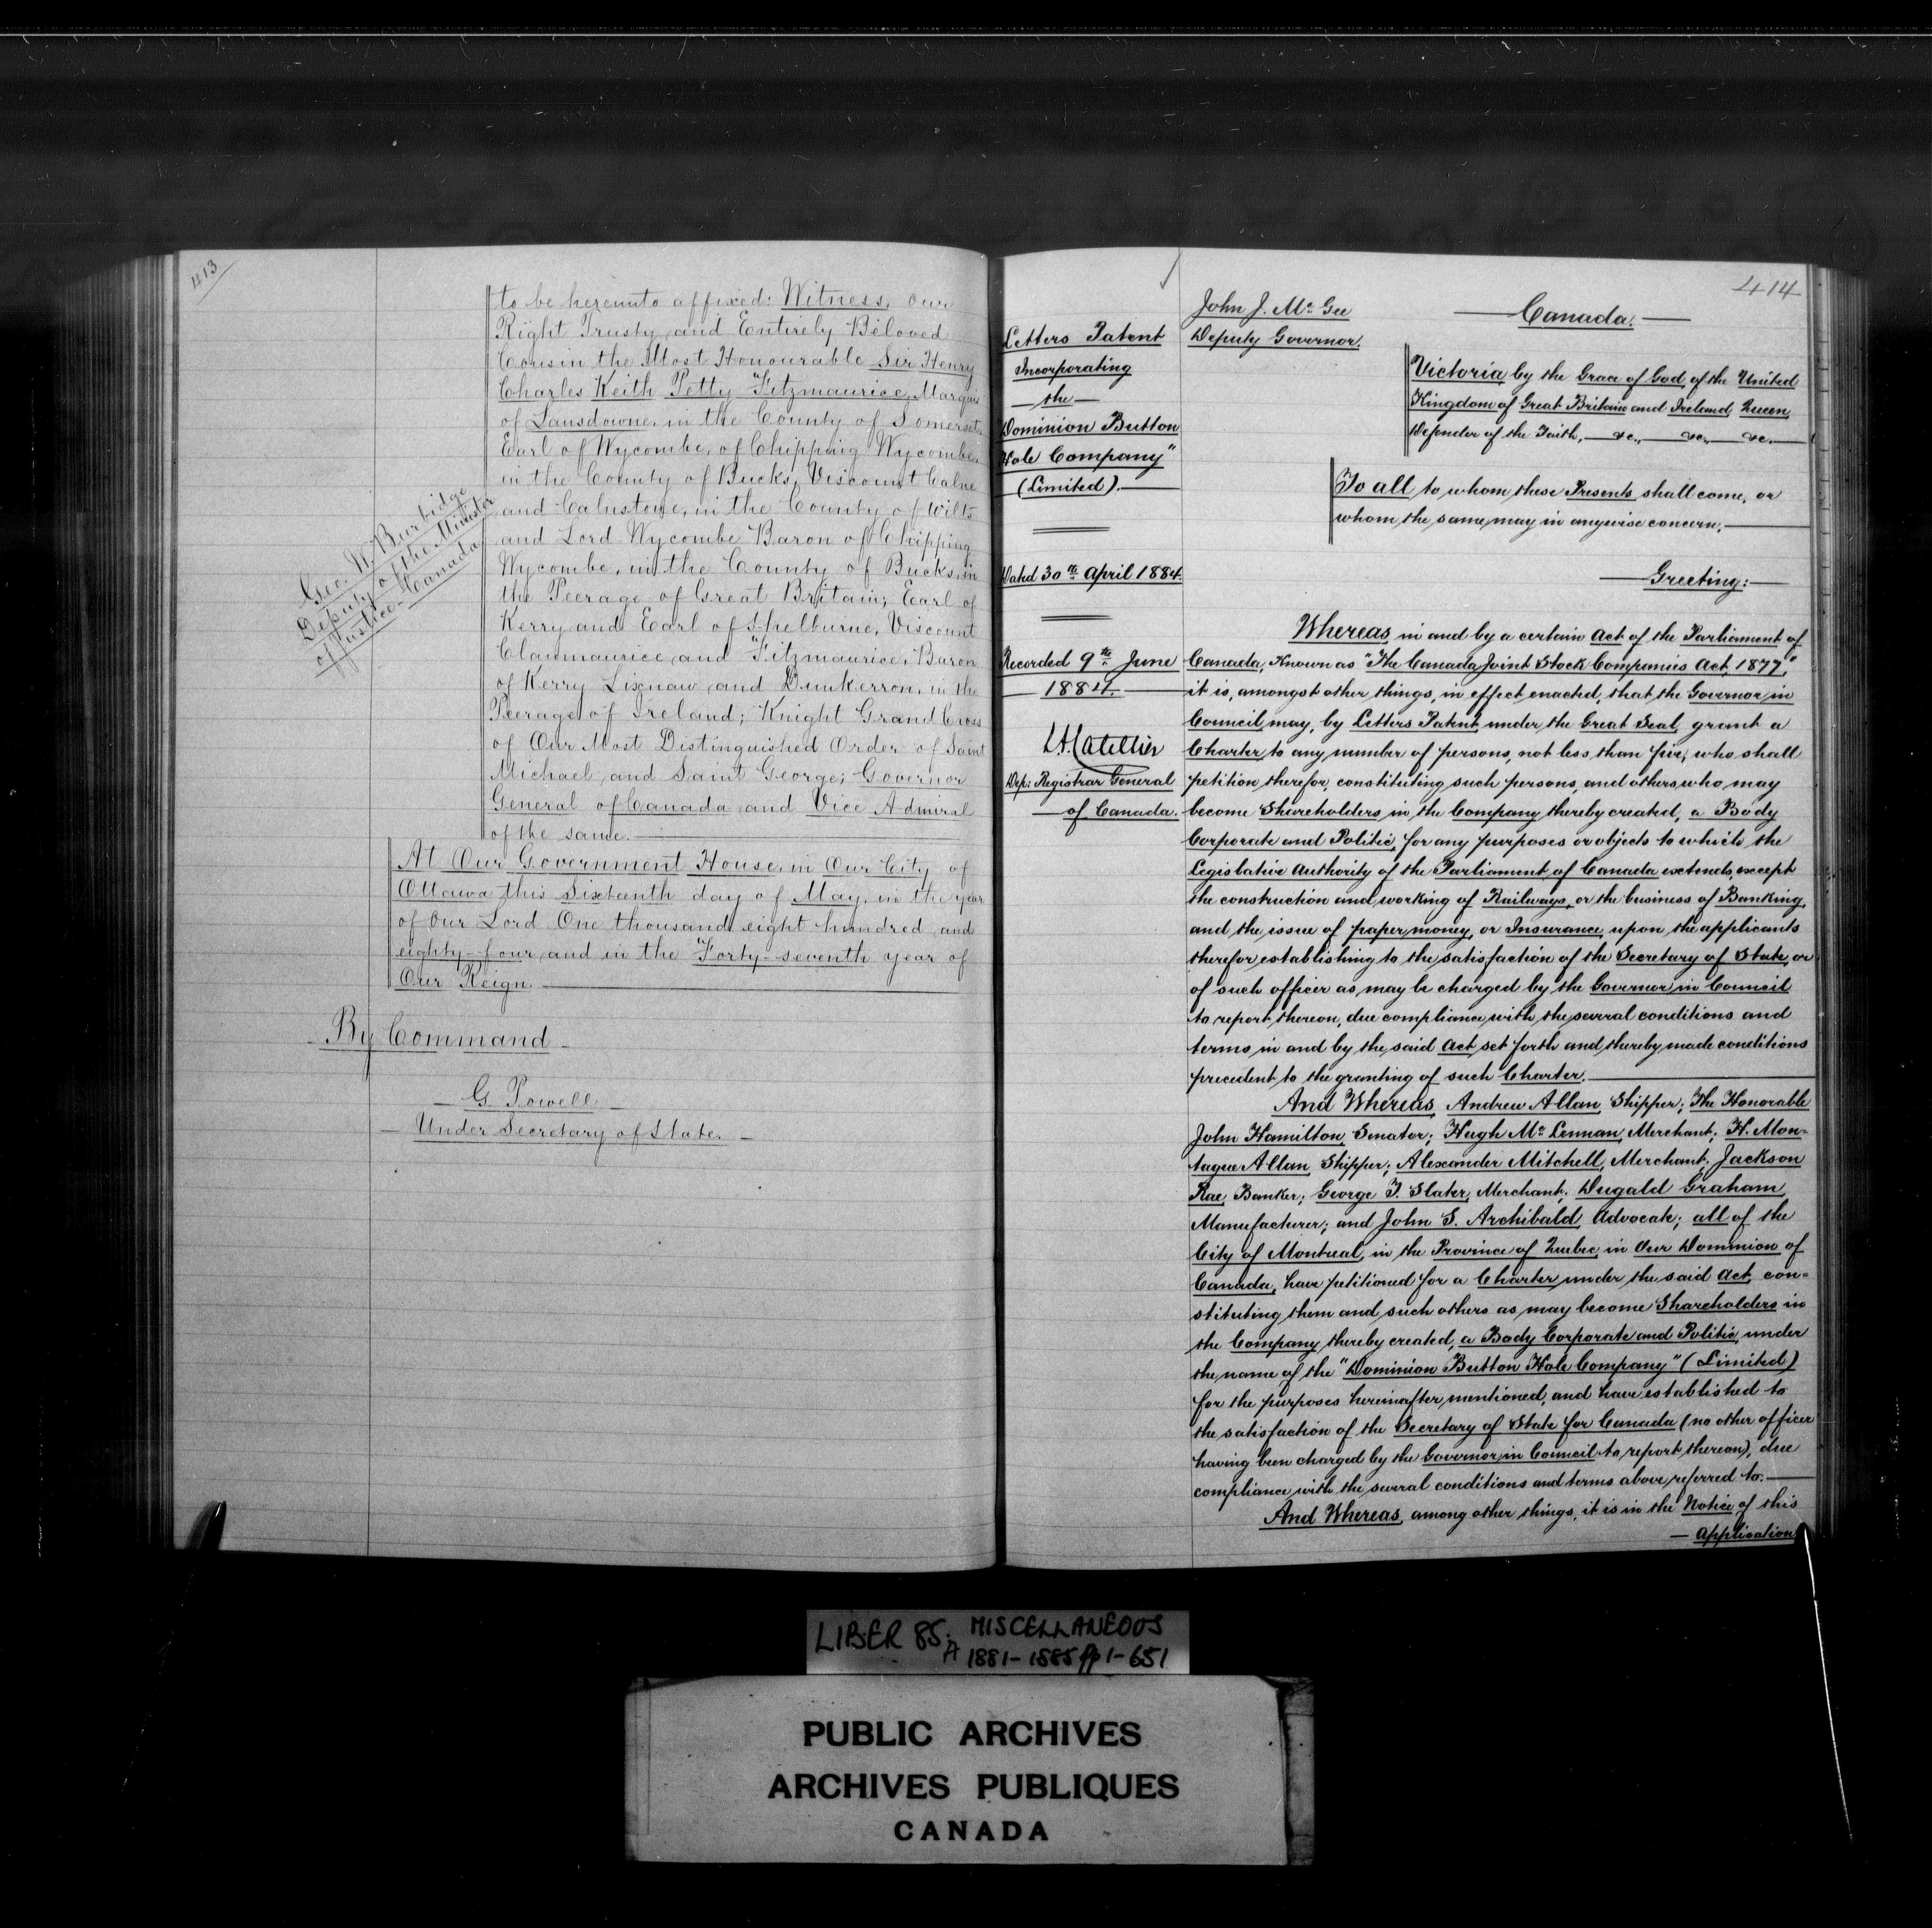 413
to be hereunto affixed: Witness, Our
Right Trusty and Entirely Beloved
Cousin the Most Honourable Sir Henry
Charles Keith Petty-Fitzmaurice, Marquis
of Lansdowne, in the County of Somerset,
Earl of Wycombe, of Chipping Wycombe,
in the County of Bucks, Viscount Calne
and Calnstone, in the County of Wilts
and Lord Wycombe Baron of Chipping
Wycombe, in the County of Bucks, in
the Peerage of Great Britain; Earl of
Kerry and Earl of Shelburne, Viscount
Clanmaurice and Fitzmaurice, Baron
of Kerry Lixnaw and Dunkerron, in the
Peerage of Ireland; Knight Grand Cross
of Our Most Distinguished Order of Saint
Michael and Saint George; Governor
General of Canada and Vice Admiral
of the same.
Geo. W. Burbidge
Deputy of the Minister
of Justice - Canada
At Our Government House, in Our City of
Ottawa this Sixteenth day of May, in the year
of Our Lord One thousand eight hundred and
eighty-four and in the Forty-seventh year of
Our Reign.
By Command
G. Powell
Under Secretary of State.
414
Letters Patent
Incorporating
the
Dominion Button
Hole Company"
(Limited).
Dated 30th April 1884.
Recorded 9th June
1884.
L. A. Catellier
Dep: Registrar General
of Canada.
John J. McGee
Deputy Governor.
Canada.
Victoria by the Grace of God, of the United
Kingdom of Great Britain and Ireland, Queen,
Defender of the Faith, &c., &c., &c.
To all to whom these Presents shall come, or
whom the same may in anywise concern;
Greeting:
Whereas, in and by a certain Act of the Parliament of
Canada, Known as "The Canada Joint Stock Companies Act, 1877,"
it is, amongst other things, in effect enacted, that the Governor in
Council may, by Letters Patent, under the Great Seal, grant a
Charter to any number of persons, not less than five, who shall
petition therefor, constituting such persons, and others who may
become Shareholders in the Company thereby created, a Body
Corporate and Politic, for any purposes or objects to which the
Legislative Authority of the Parliament of Canada extends, except
the construction and working of Railways, or the business of Banking,
and the issue of paper money, or Insurance, upon the applicants
therefor establishing to the satisfaction of the Secretary of State, or
of such officer as may be charged by the Governor in Council
to report thereon, due compliance with the several conditions and
terms in and by the said Act set forth and thereby made conditions
precedent to the granting of such Charter.
And Whereas, Andrew Allan, Shipper; The Honorable
John Hamilton, Senator; Hugh McLennan, Merchant; H. Mon=
tague Allan, Shipper; Alexander Mitchell, Merchant; Jackson
Rae, Banker; George T. Slater, Merchant; Dugald Graham,
Manufacturer; and John S. Archibald, Advocate; all of the
City of Montreal, in the Province of Quebec, in Our Dominion of
Canada, have petitioned for a Charter under the said Act, con=
stituting them and such others as may become Shareholders in
the Company thereby created, a Body Corporate and Politic, under
the name of the "Dominion Button Hole Company" (Limited)
for the purposes hereinafter mentioned, and have established to
the satisfaction of the Secretary of State for Canada (no other officer
having been charged by the Governor in Council to report thereon), due
compliance with the several conditions and terms above referred to.
And Whereas, among other things, it is in the Notice of this
Application
LIBER 85A: MISCELLANEOUS
1881-1885 pp 1-651
PUBLIC ARCHIVES
ARCHIVES PUBLIQUES
CANADA